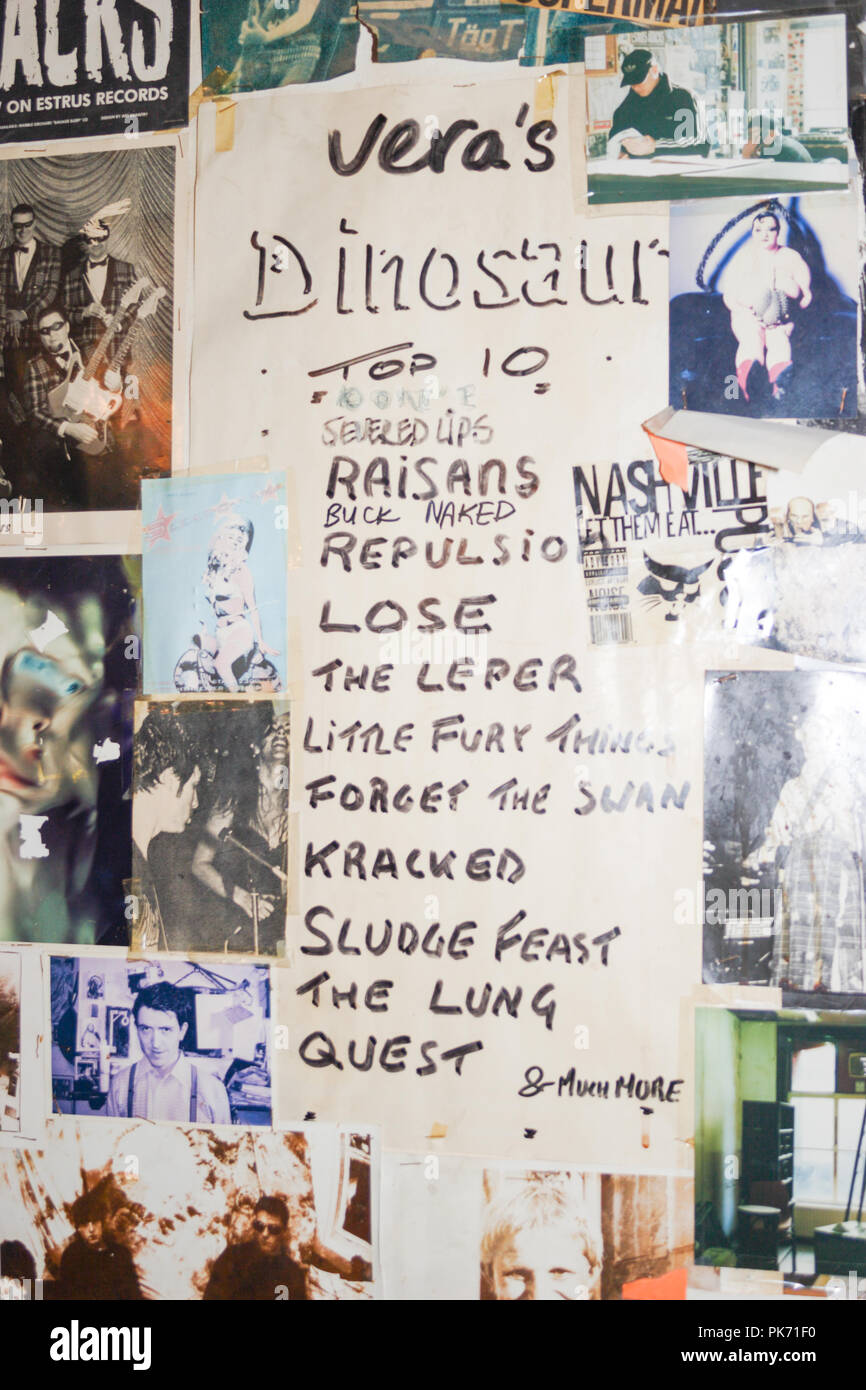 ACKS
ON ESTRUS RECORDS
TäqT
ERMAN
vera's
Dinosaur
TOP 10
SEVERED LIPS
RAISANS
BUCK NAKED
REPULSIO
LOSE
THE LEPER
LITTLE FURY THINGS
FORGET THE SWAN
KRACKED
SLUDGE FEAST
THE LUNG
QUEST
& MUCH MORE
NASHVILLE
LET THEM EAT...
PUSS
ADVISORY
NOISE
alamy
Image ID: PK71F0
www.alamy.com